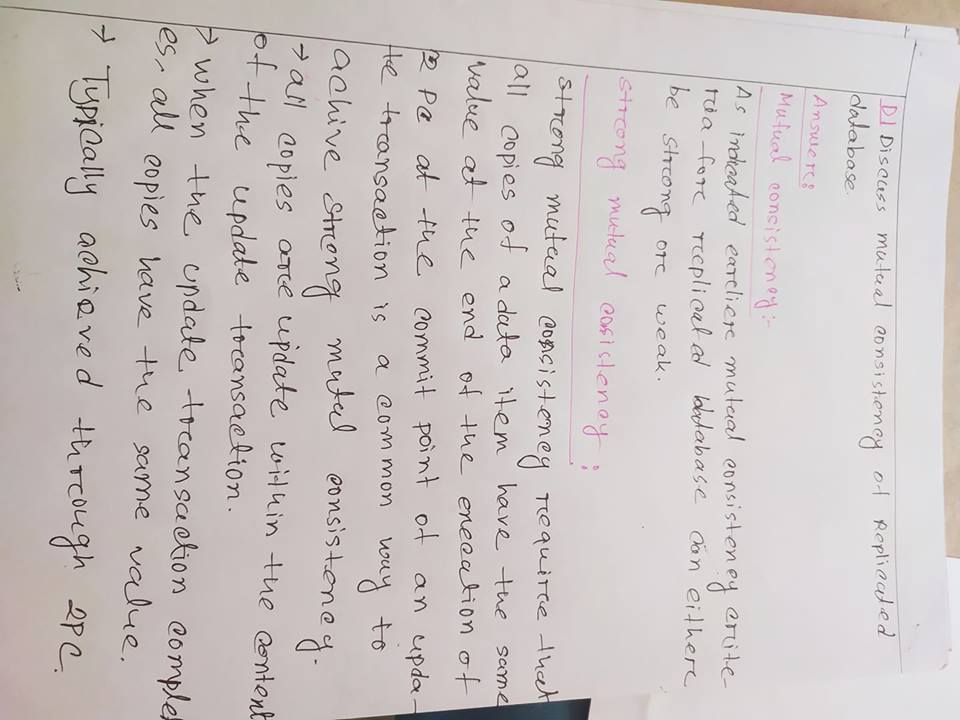 D1 Discuss mutual consistency of Replicated
database.
Answere:
Mutual consistency:-
As indicated earcliere mutual consistency crite-
ria fore replicated database can eithere
be strong ore weak.
strong mutual cosistency:
strong mutual consistency requirce that
all copies of a data item have the same
value at the end of the execution of
2 Pc at the commit point of an upda-
te transaction is a common way to
achive strong mutal consistency.
→ all copies arce update within the context
of the update trcansaction.
→ when the update trcansaction complet
es, all copies have the same value.
→ Typically achieved thrcough 2PC.